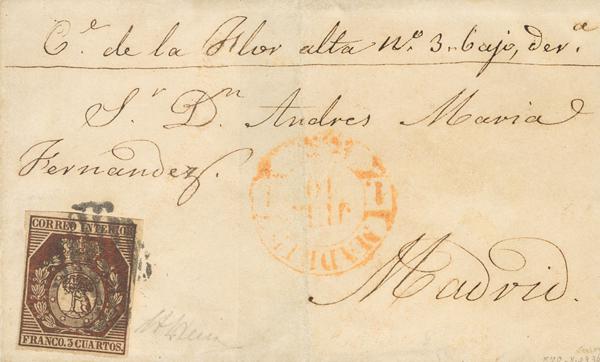 C.e de la Flor alta n.o 3. bajo, der.a
S.r D.n Andres Maria
Fernandez.
MADRID
Madrid.
CORREO INTERIOR
FRANCO. 3 CUARTOS.